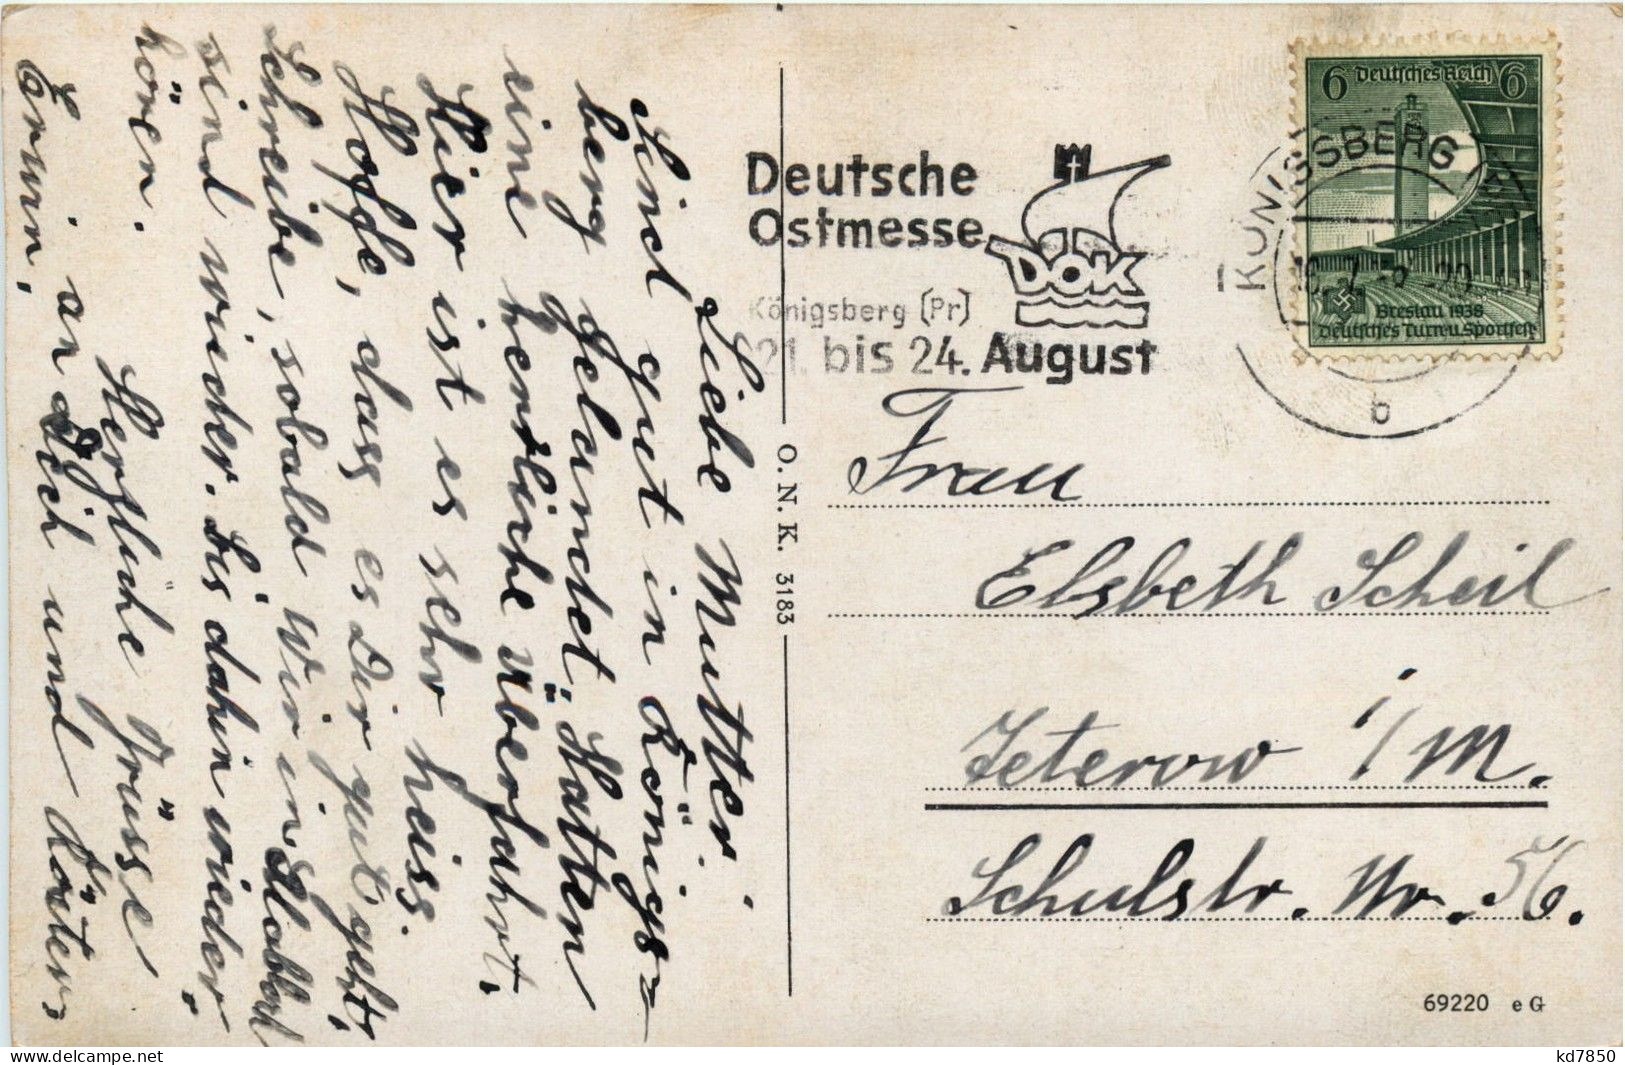 Liebe Mutter!
Sind gut in Königs=
berg gelandet, Hatten
eine herrliche Überfahrt.
Hier ist es sehr heiss.
Hoffe, dass es Dir gut geht,
Schreibe, sobald wir in
sind wieder. Bis dahin wieder
hören. Herzliche Grüsse
an Dich und
Erwin,
Deutsche
Ostmesse
DOK
Königsberg (Pr)
21. bis 24. August
KÖNIGSBERG
b
6 Deutsches Reich 6
Breslau 1938
Deutsches Turn- u. Sportfest
O. N. K. 3183
Frau
Elsbeth Scheil
Teterow i/M.
Schulstr. Nr. 56.
69220 e G
kd7850